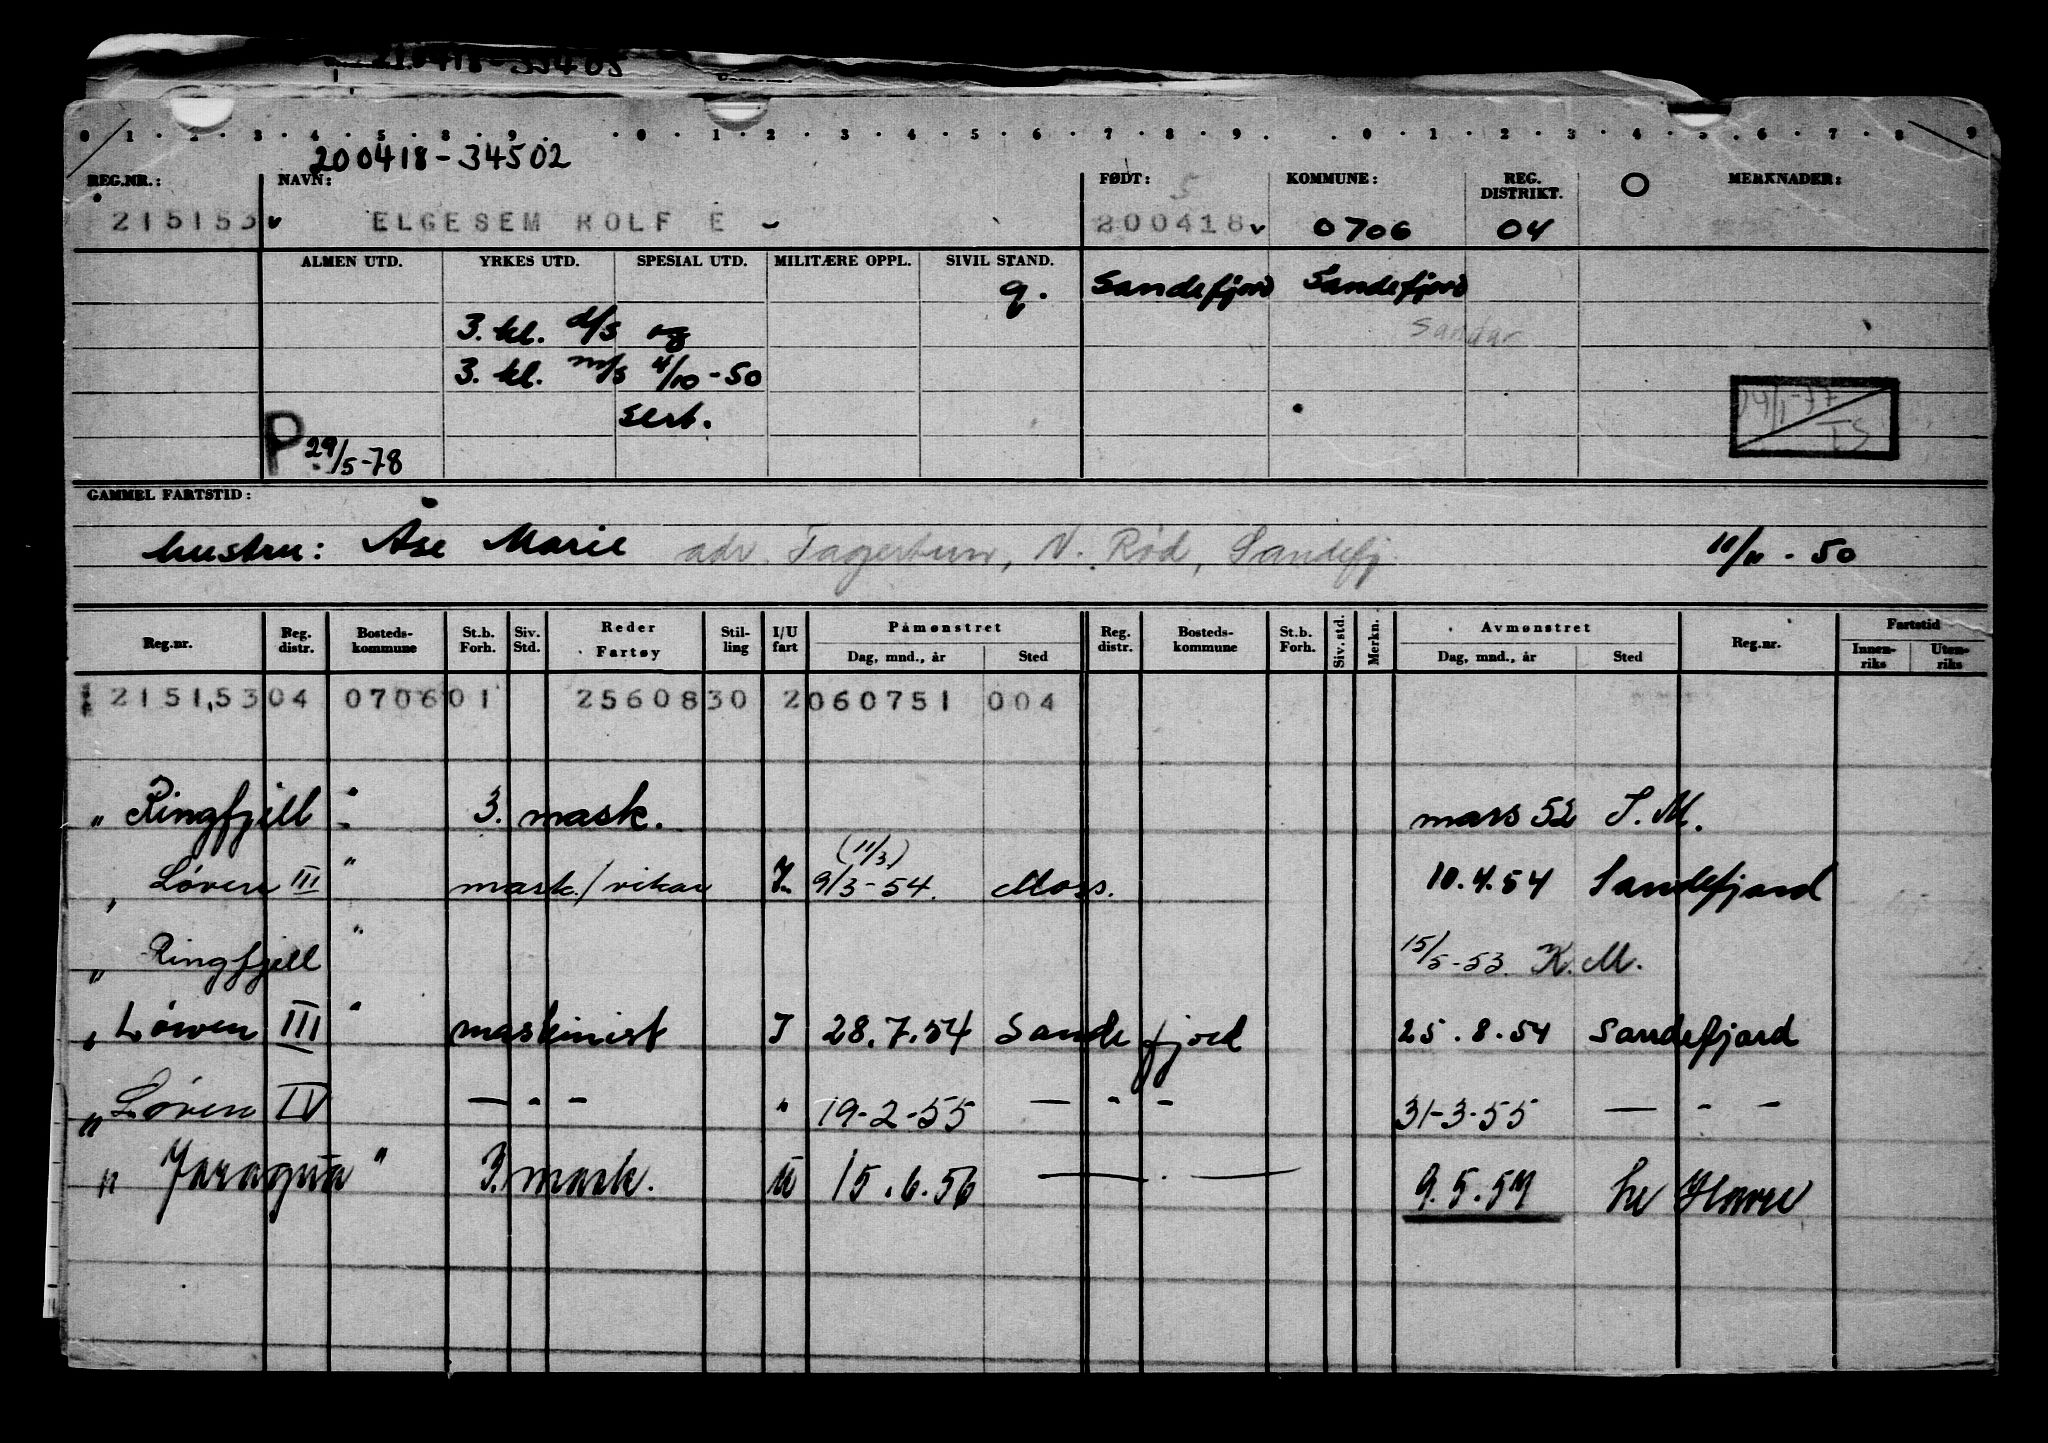 0 1 2 3 4 5 8 9 0 1 2 3 4 5 6 7 8 9 0 1 2 3 4 5 6 7 8 9
200418-34502
REG.NR.: NAVN: FØDT: KOMMUNE: REG. DISTRIKT. O MERKNADER:
5
215153 ELGESEM ROLF E 200418 0706 04
ALMEN UTD. YRKES UTD. SPESIAL UTD. MILITÆRE OPPL. SIVIL STAND.
g. Sandefjord Sandefjord
3. kl. d/s og Sandar
3. kl. m/s 4/10-50
sert.
14/1-77
IS
P 29/5-78
GAMMEL FARTSTID:
hustru: Åse Marie adr. Fagertun, N. Rød, Sandefj. 11/11-50
Reg.nr. Reg. distr. Bosteds-kommune St.b. Forh. Siv. Std. Reder Fartøy Stil-ling I/U fart Påmønstret Dag, mnd., år Sted Reg. distr. Bosteds-kommune St.b. Forh. Siv. std. Merkn. Avmønstret Dag, mnd., år Sted Reg.nr. Fartstid Innen-riks Uten-riks
215153 04 0706 01 256083 0 2 060751 004
" Ringfjell " 3. mask. mars 52 S.M.
(11/3)
" Løven III " mask./vikar I. 9/3-54. Moss. 10.4.54 Sandefjord
" Ringfjell " 15/5-53. K.M.
" Løven III " maskinist I 28.7.54 Sandefjord 25.8.54 Sandefjord
" Løven IV — - — " 19-2-55 — - — 31-3-55 — - —
" Jaragua " 3. mask. U 15.6.56 — . — 9.5.57 Le Havre